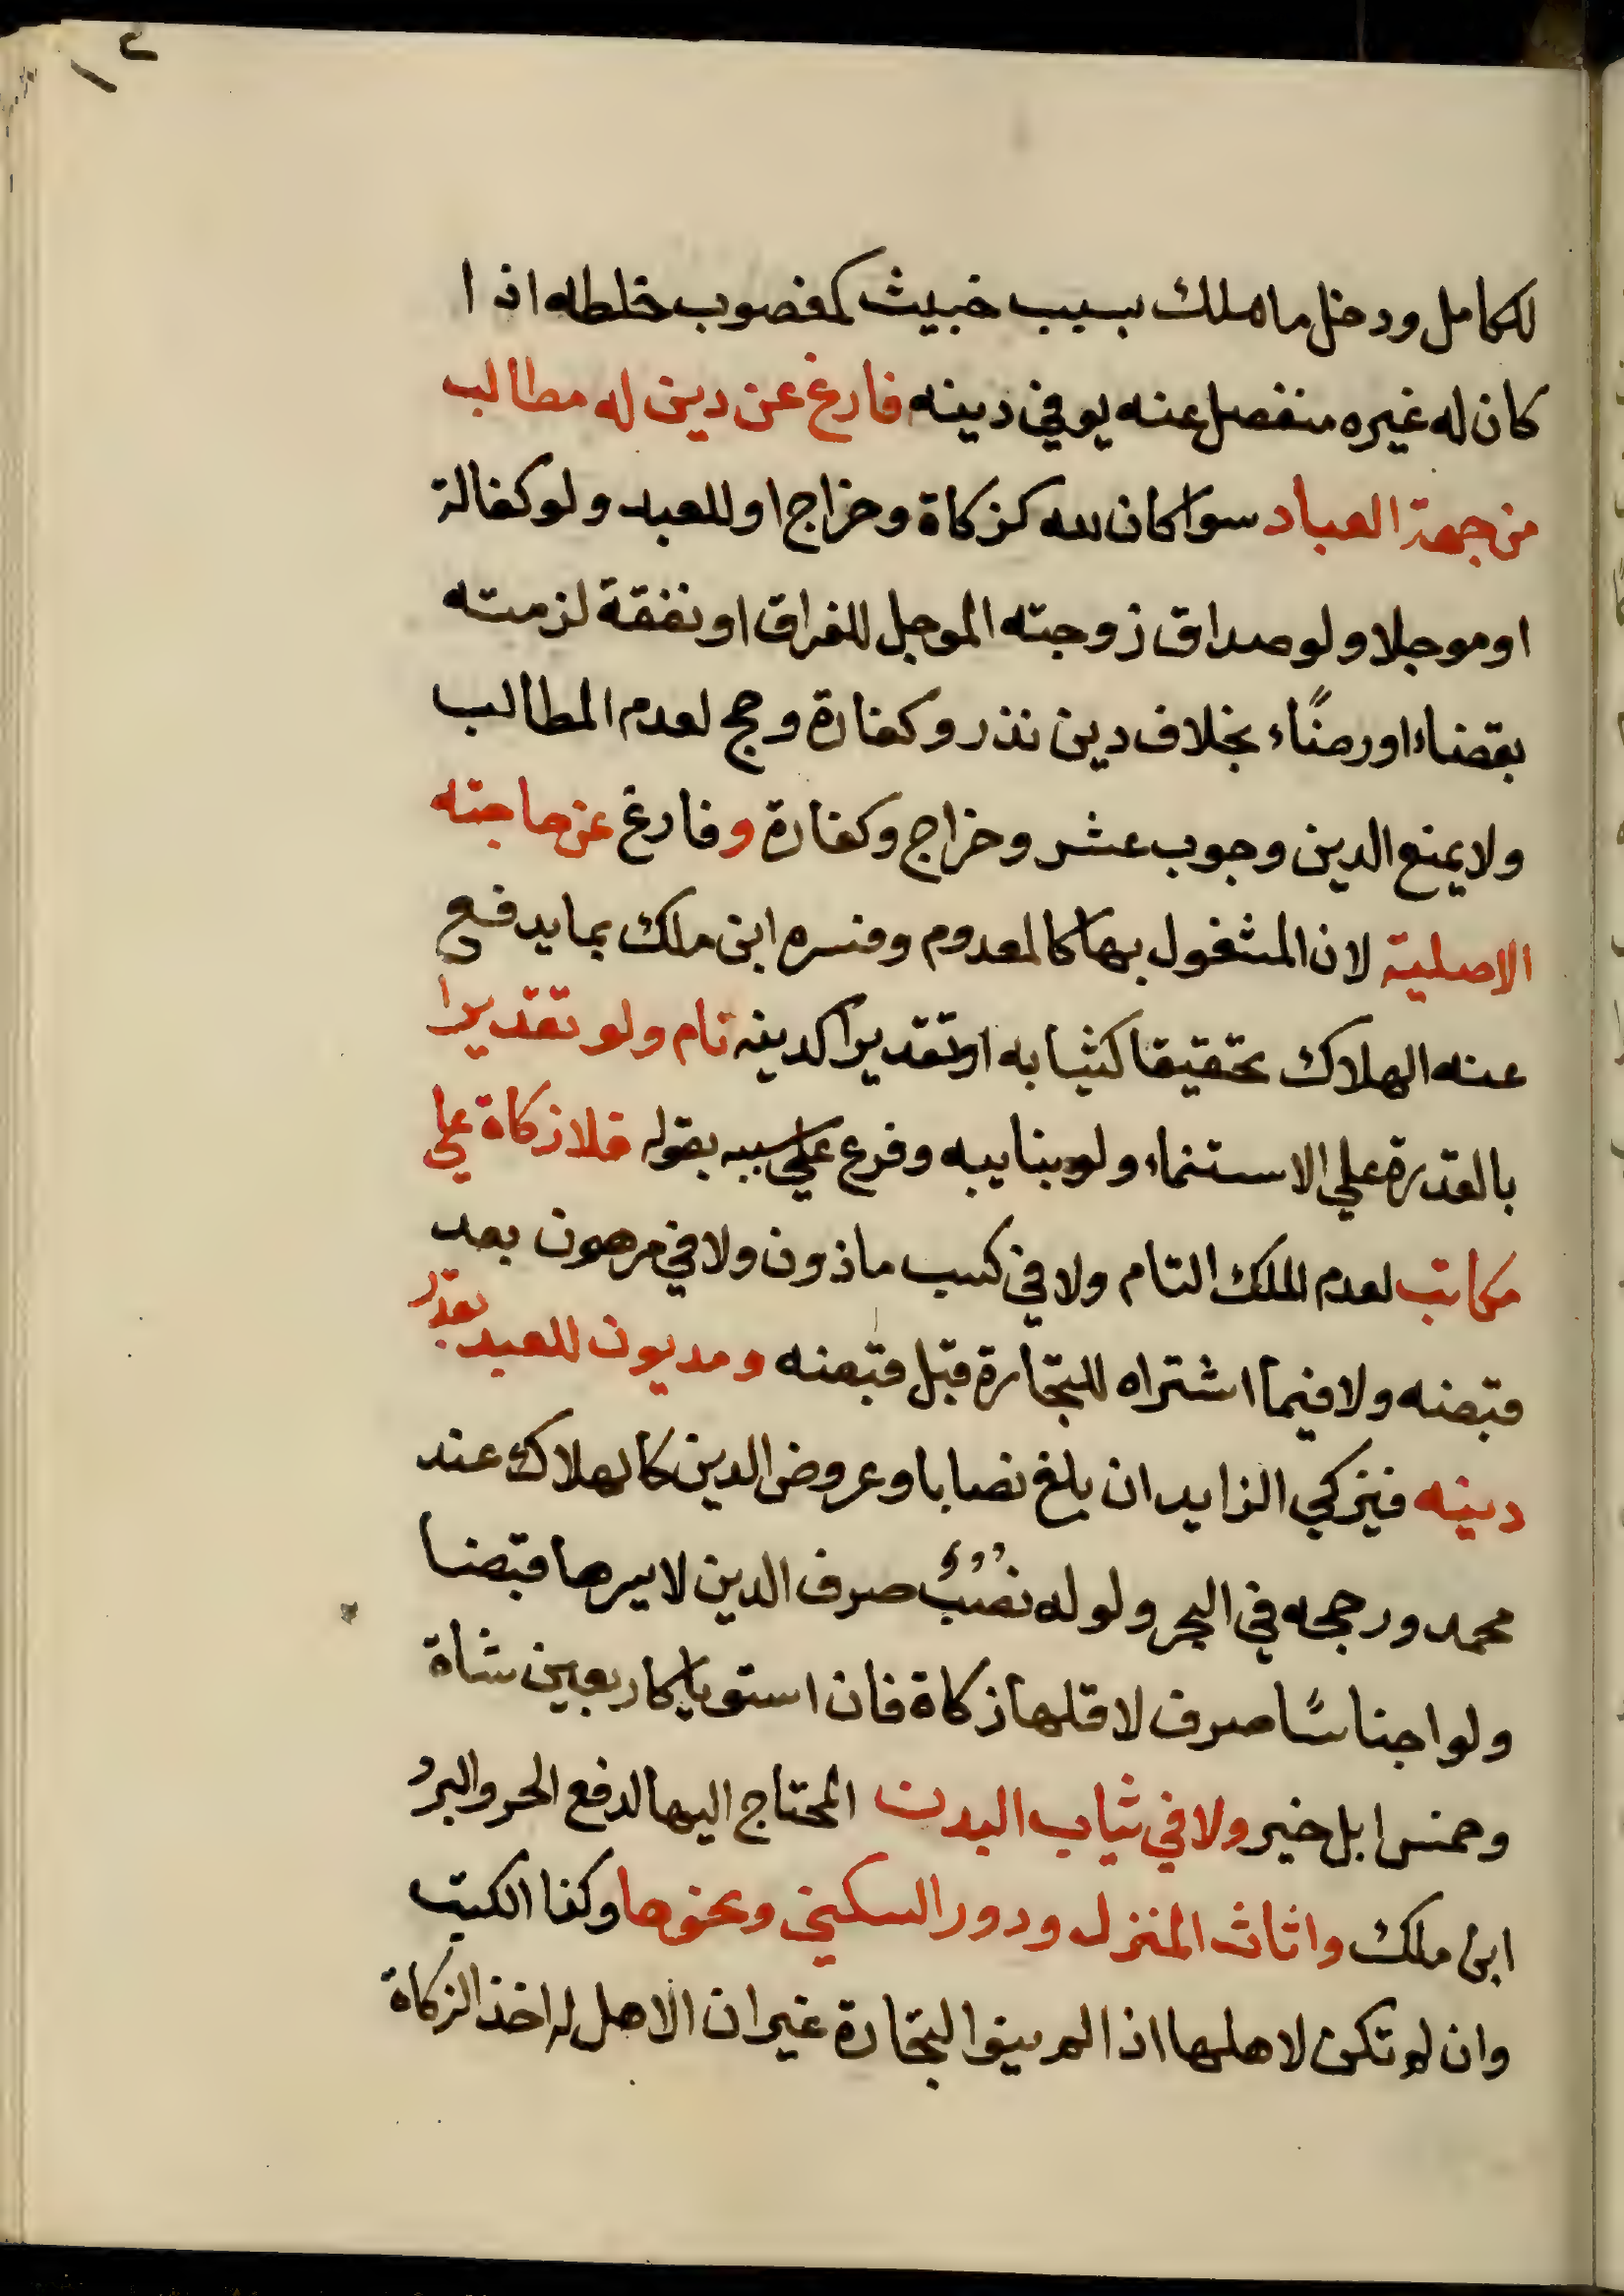 لكامل ودخل ما ملك بسبب خبيث كمغصوب خلطه اذا
كان له غيره منفصل عنه يوفي دينه فارغ عن دين له مطالب
من جهة العباد سوا كان لله كزكاة وخراج او للعبد ولو كفالة
او موجلا ولو صداق زوجته الموجل للفراق او نفقة لزمته
بقضاء او رضًاء بخلاف دين نذر وكفارة وحج لعدم المطالب
ولا يمنع الدين وجوب عشر وخراج وكفارة وفارغ عن حاجته
الاصلية لان المشغول بها كالمعدوم وفسره ابن ملك بما يدفع
عنه الهلاك تحقيقا كثيابه او تقديرا كدينه نام ولو تقديرا
بالقدرة علي الاستنماء ولو بنايبه وفرع علي سببه بقوله فلا زكاة علي
مكاتب لعدم الملك التام ولا في كسب ماذون ولا في مرهون بعد
قبضه ولا فيما اشتراه للتجارة قبل قبضه ومديون للعبد بقدر
دينه فيزكي الزايد ان بلغ نصابا وعروض الدين كالهلاك عند
محمد ورجحه في البحر ولو له نُصُبٌ صرف الدين لايسرها قبضا
ولو اجناسًا صرف لاقلها زكاة فان استويا كاربعين شاة
وخمس ابل خير ولا في ثياب البدن المحتاج اليها لدفع الحر والبرد
ابن ملك واثاث المنزل ودور السكني ونحوها وكذا الكتب
وان لم تكن لاهلها اذا لم ينوا التجارة غير ان الاهل له اخذ الزكاة